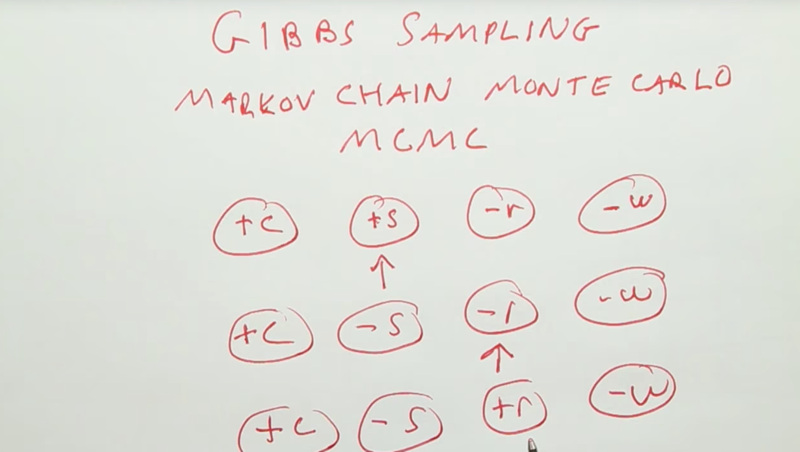 GIBBS SAMPLING
MARKOV CHAIN MONTE CARLO
MCMC
+c +s -r -w
+c -s -r -w
+c -s +r -w